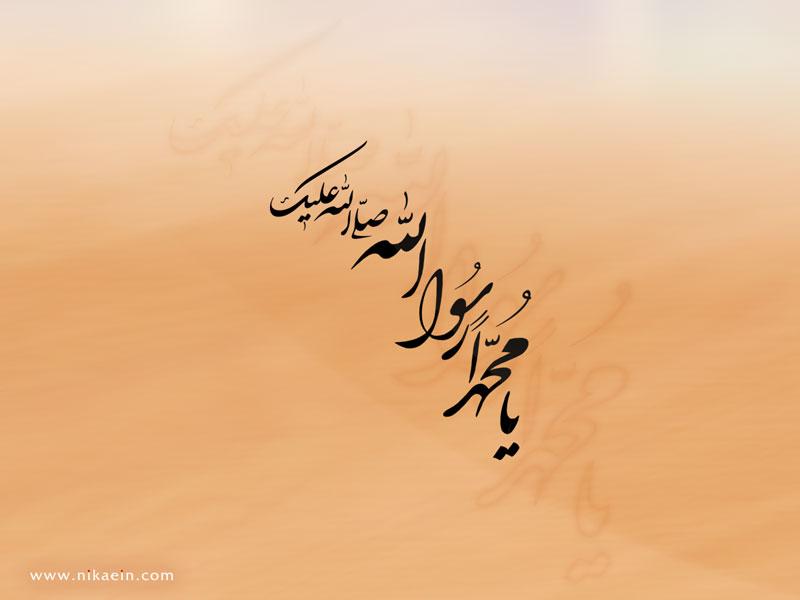 یا مُحمّداً رسُول الله صلّی الله علیک
www.nikaein.com